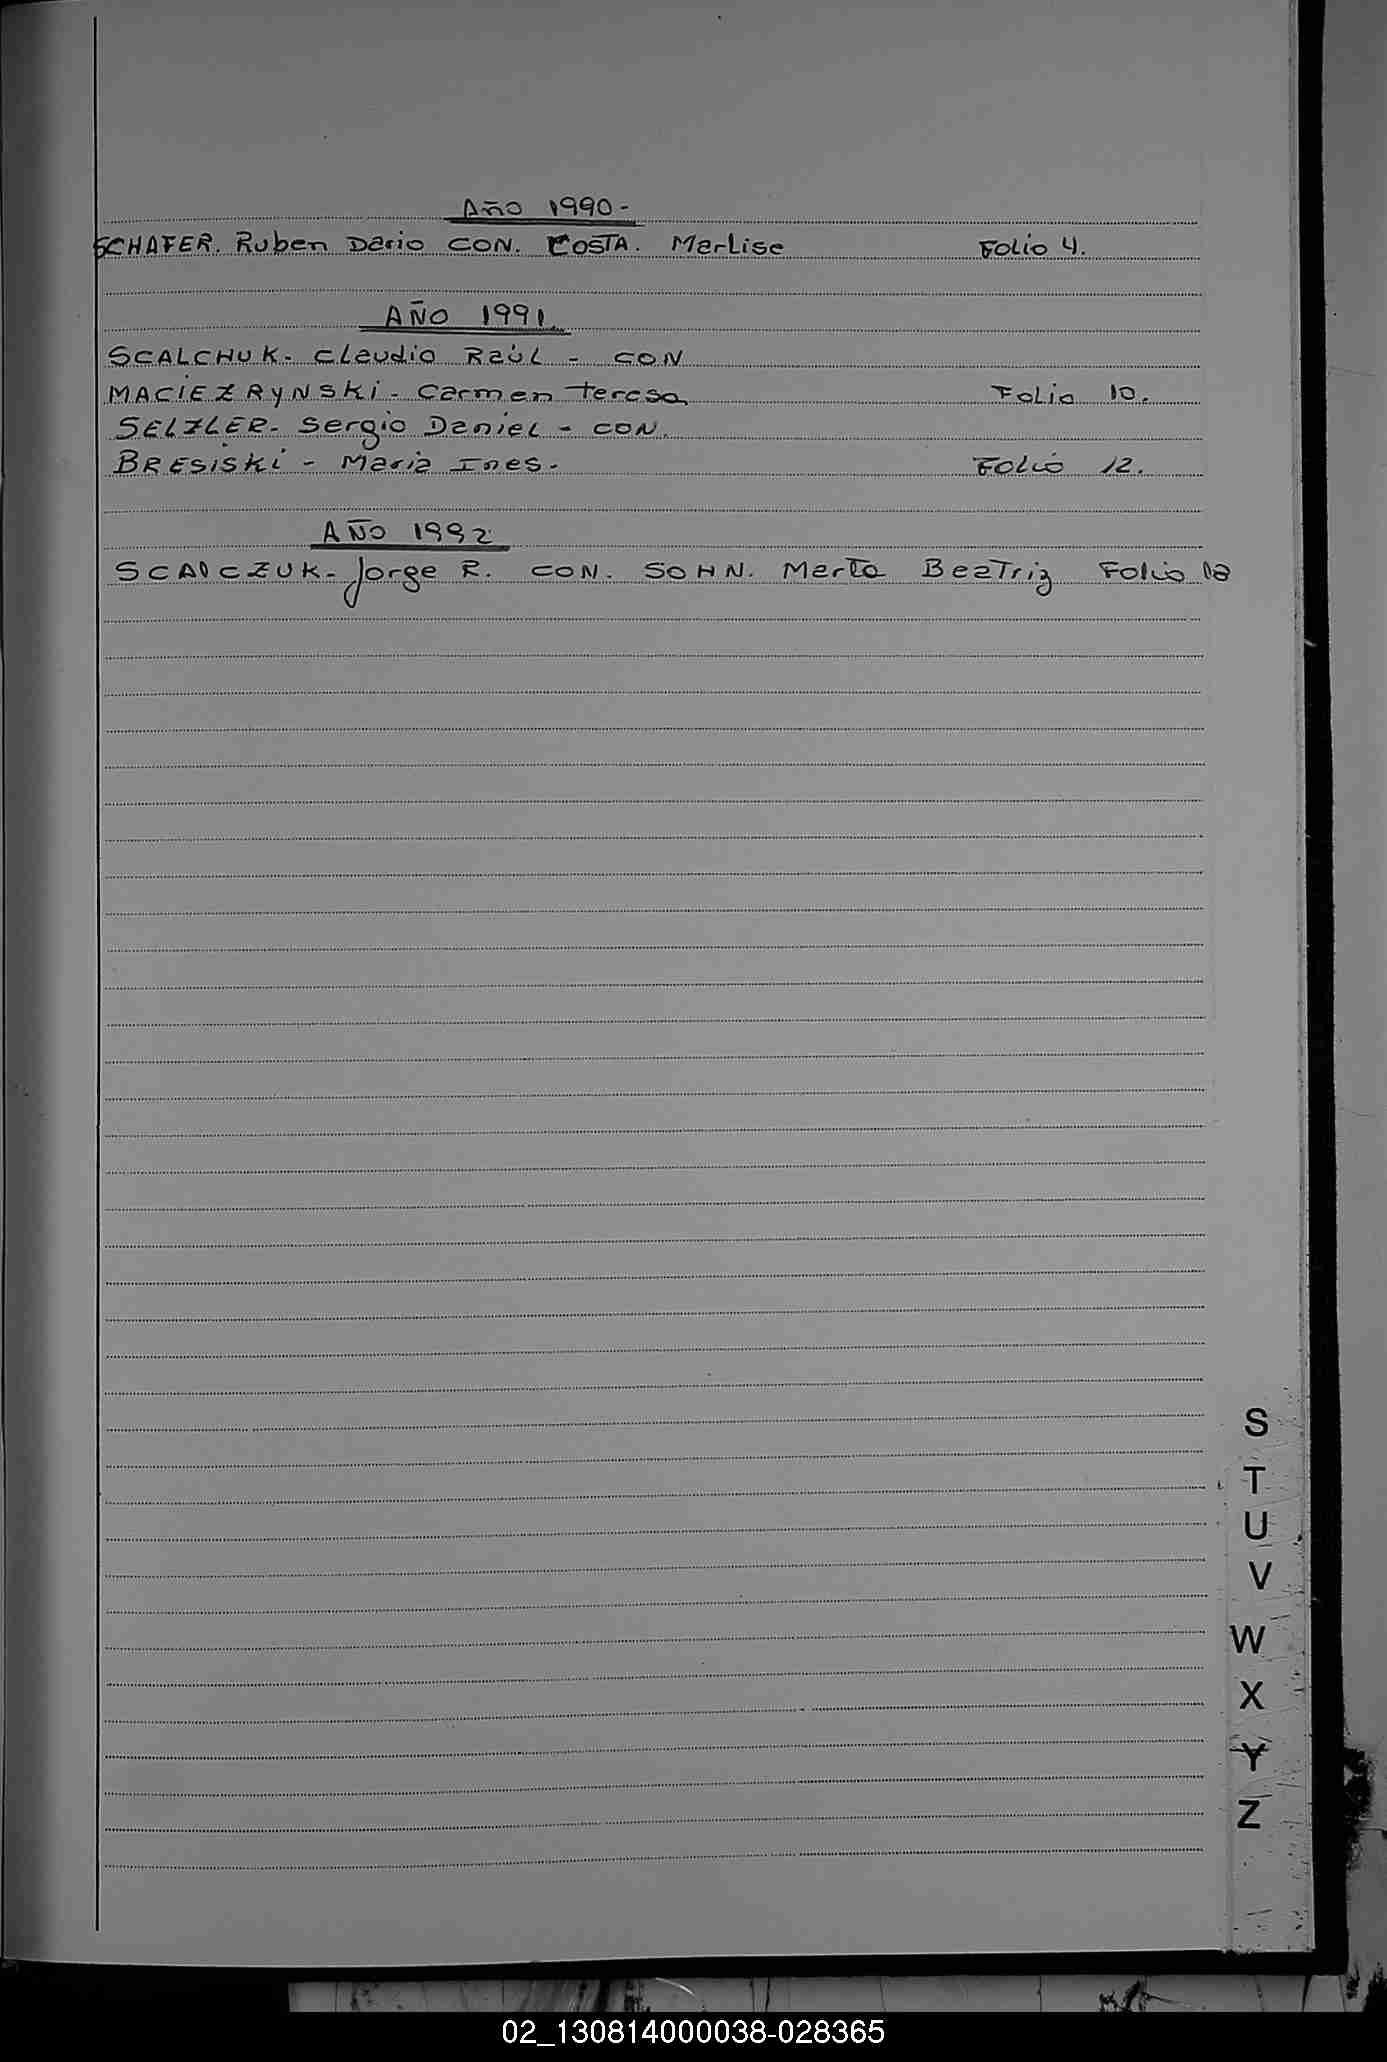 Año 1990-
SCHAFER. Ruben Dario CON. COSTA. Marlise Folio 4.
AÑO 1991
SCALCHUK- Claudio Raúl - CON
MACIEZRYNSKi- Carmen Teresa Folio 10.
SELZLER- Sergio Daniel - CON.
BRESiSKi - Maria Ines. Folio 12.
AÑO 1992
Jorge R. CON. SOHN. Marta Beatriz Folio
S
T
U
V
W
X
Y
Z
02_130814000038-028365